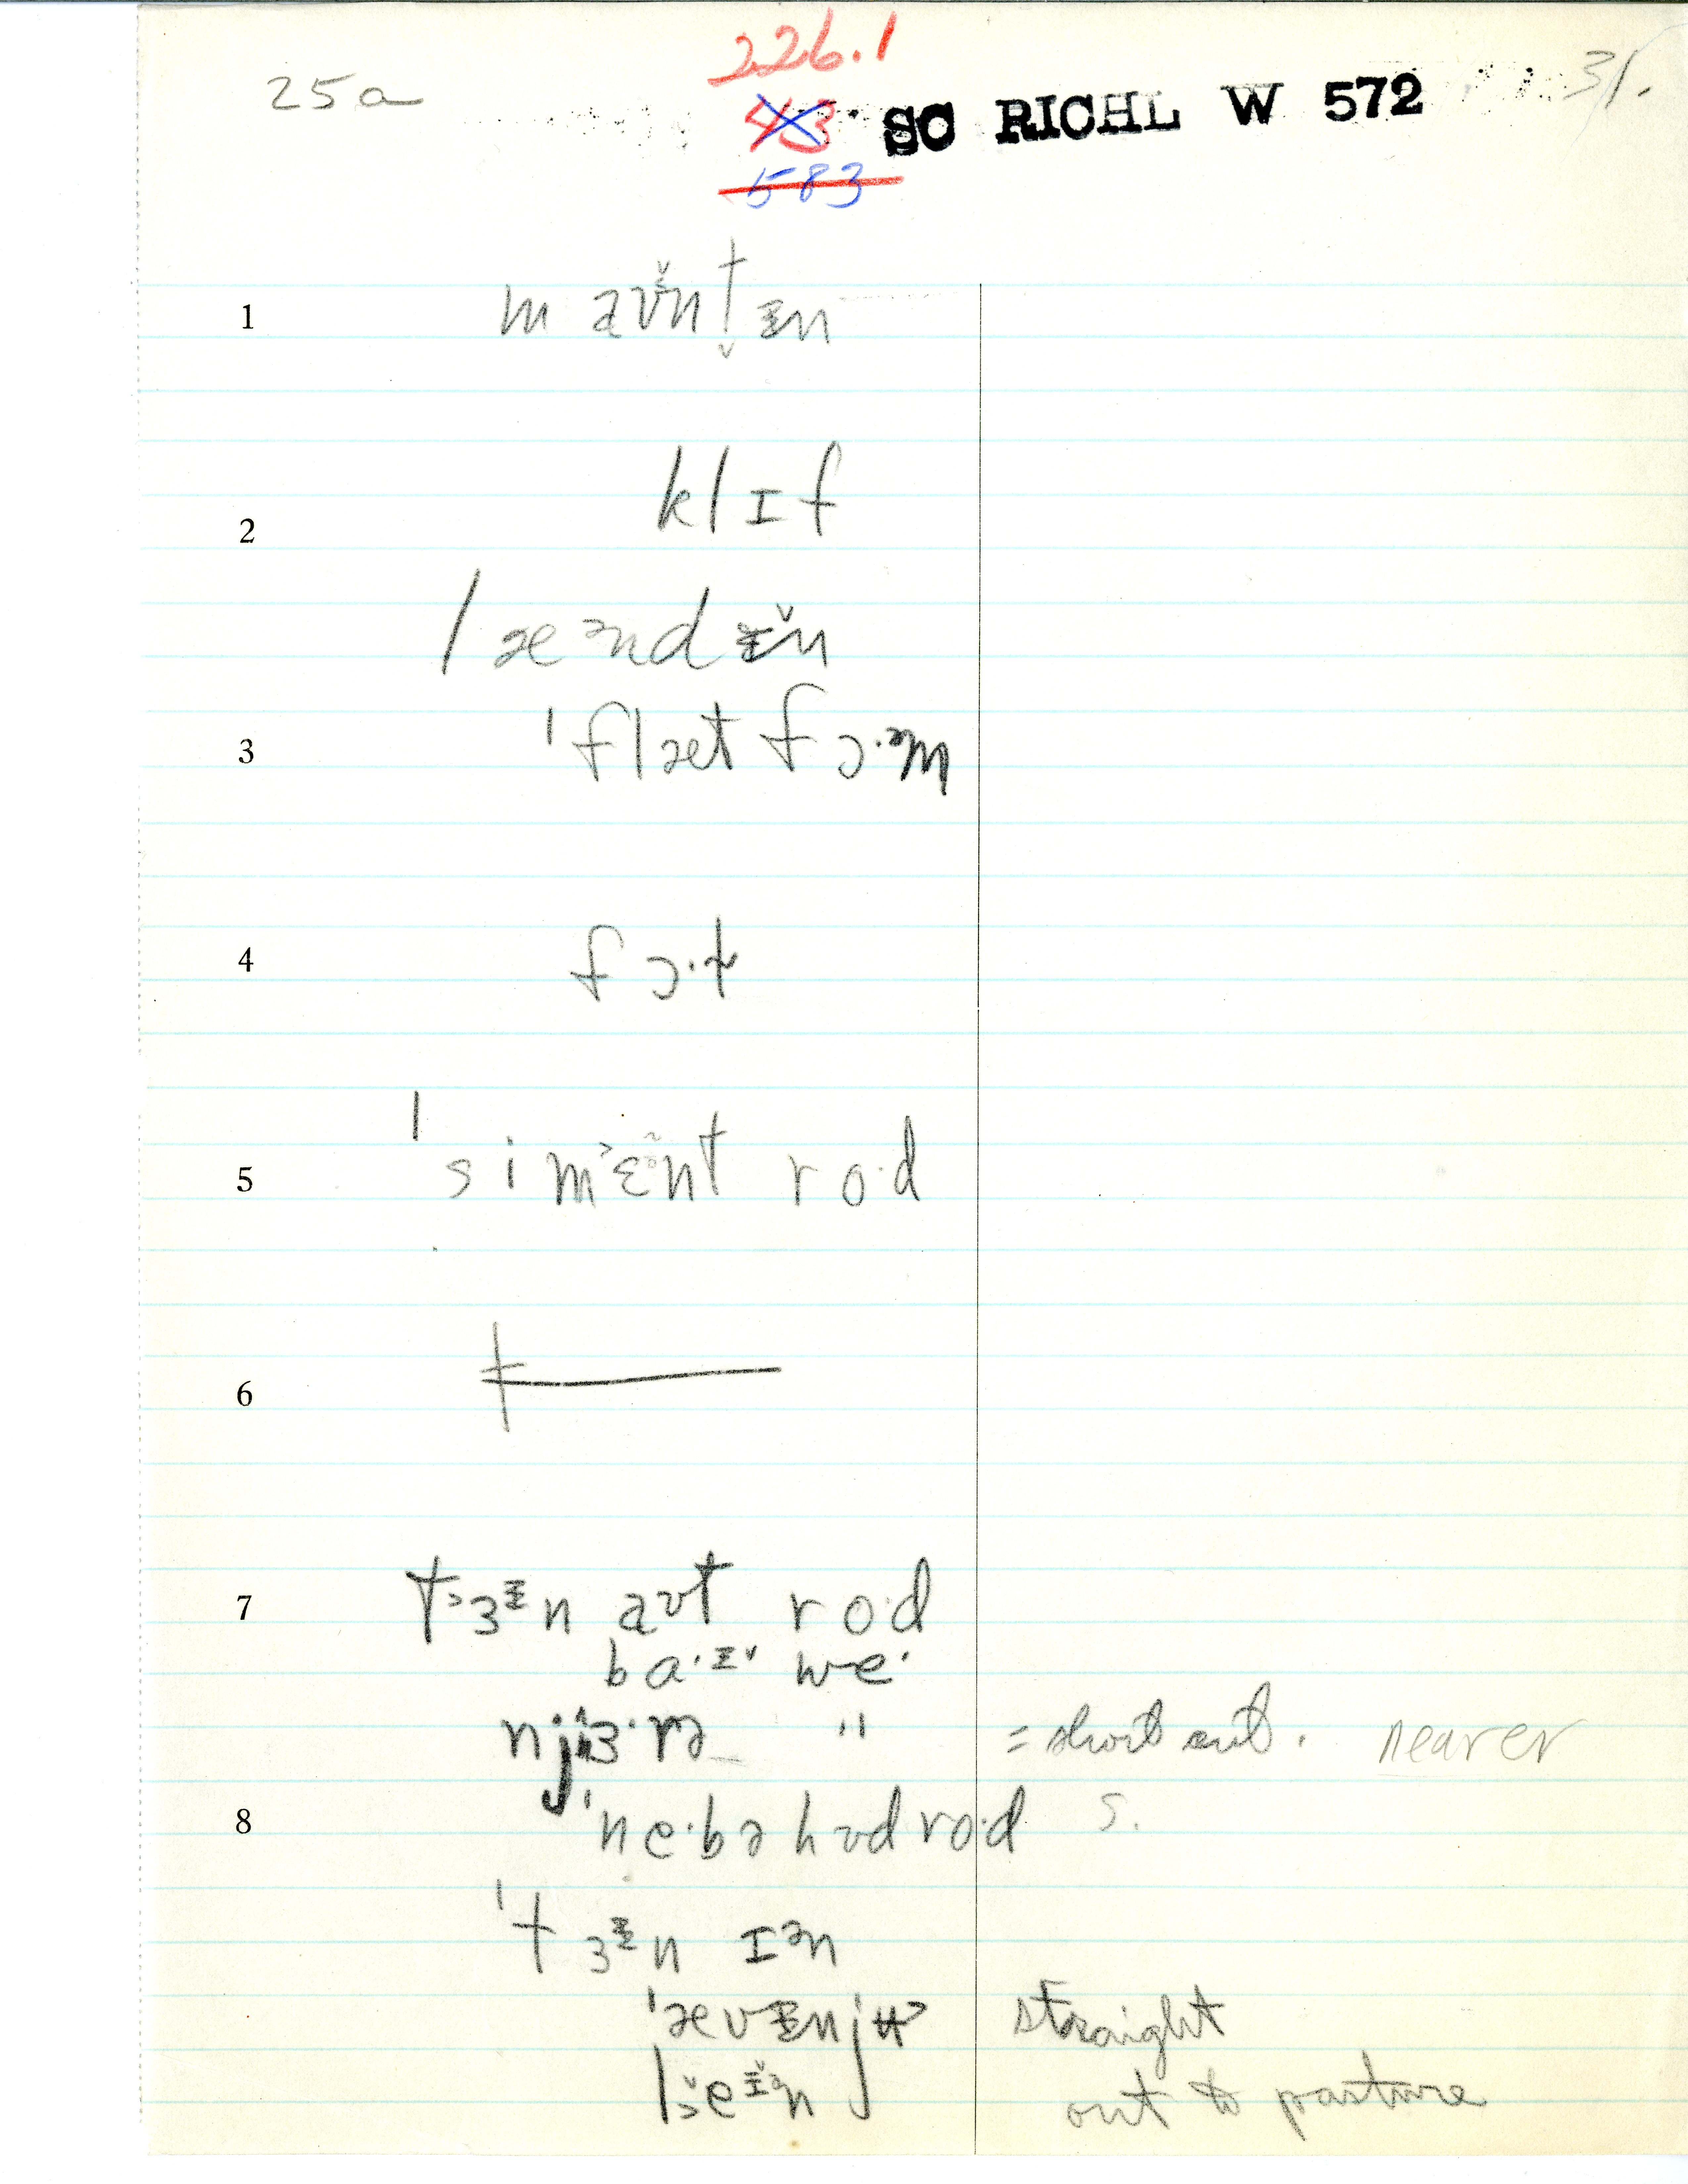 226.1
25a 31.
43 SC RICHL W 572
583
1 maʊ̌nt ᵻn
2 klɪf
læᵊndᵻ̌n
3 ˈflæt fɔ·əm
4 fɔ·t
5 ˈsimɛ̃nt ro·d
6
7 t˃ɜᵻn aʊt ro·d
ba·ᵻ˅ we·
njɜ·rə " = short cut. nearer
8 ˈne·bəhʊdro·d S.
ˈtɜᵻn ɪᵊn
ˈævᵻnjʉ˃ straight
le ᵻ̌n out to pasture